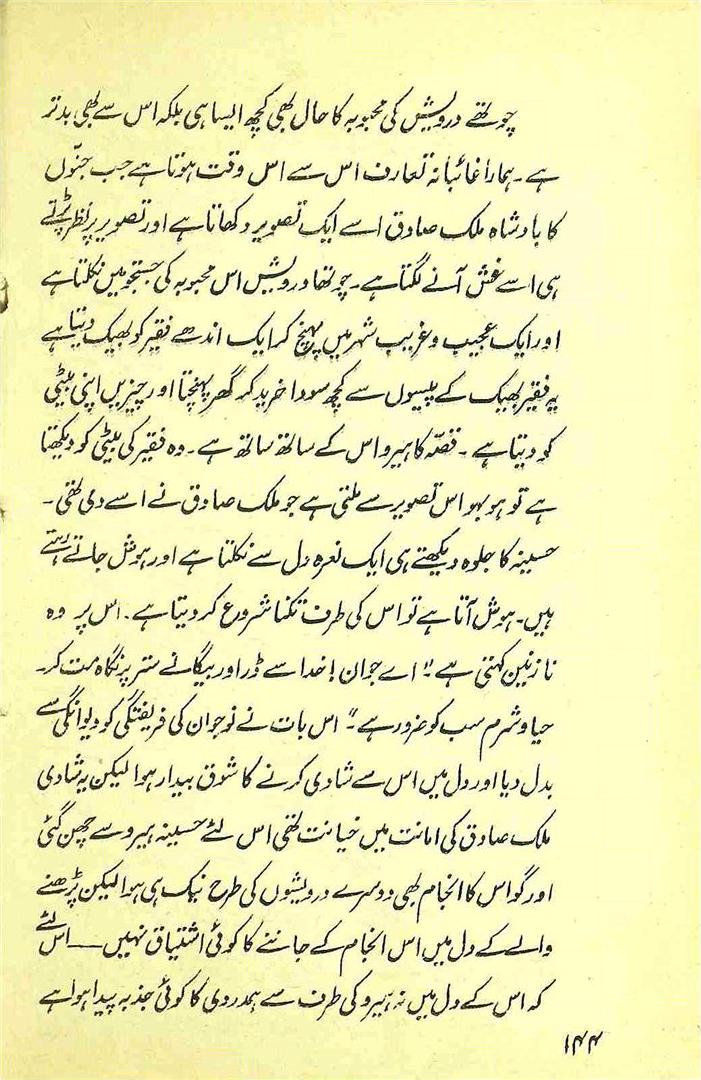 چوتھے درویش کی محبوبہ کا حال بھی کچھ ایسا ہی بلکہ اس سے بھی بدتر
ہے۔ ہمارا غائبانہ تعارف اس سے اس وقت ہوتا ہے جب جنّوں
کا بادشاہ ملک صادق اسے ایک تصویر دکھاتا ہے اور تصویر پر نظر پڑتے
ہی اسے غش آنے لگتا ہے۔ چوتھا درویش اس محبوبہ کی جستجو میں نکلتا ہے
اور ایک عجیب و غریب شہر میں پہنچ کر ایک اندھے فقیر کو بھیک دیتا ہے
یہ فقیر بھیک کے پیسوں سے کچھ سودا خرید کر گھر پہنچتا اور چیزیں اپنی بیٹی
کو دیتا ہے۔ قصّہ کا ہیرو اس کے ساتھ ساتھ ہے۔ وہ فقیر کی بیٹی کو دیکھتا
ہے تو ہو بہو اس تصویر سے ملتی ہے جو ملک صادق نے اسے دی تھی۔
حسینہ کا جلوہ دیکھتے ہی ایک نعرہ دل سے نکلتا ہے اور ہوش جاتے رہتے
ہیں۔ ہوش آتا ہے تو اس کی طرف تکنا شروع کر دیتا ہے۔ اس پر وہ
نازنین کہتی ہے۔ "اے جوان! خدا سے ڈر اور بیگانے ستر پر نگاہ مت کر۔
حیا و شرم سب کو ضرور ہے۔" اس بات نے نوجوان کی فریفتگی کو دیوانگی سے
بدل دیا اور دل میں اس سے شادی کرنے کا شوق بیدار ہوا لیکن یہ شادی
ملک صادق کی امانت میں خیانت تھی اس لئے حسینہ ہیرو سے چھن گئی
اور گو اس کا انجام بھی دوسرے درویشوں کی طرح نیک ہی ہوا لیکن پڑھنے
والے کے دل میں اس انجام کے جاننے کا کوئی اشتیاق نہیں — اس لئے
کہ اس کے دل میں نہ ہیرو کی طرف سے ہمدردی کا کوئی جذبہ پیدا ہوا ہے
۱۴۴